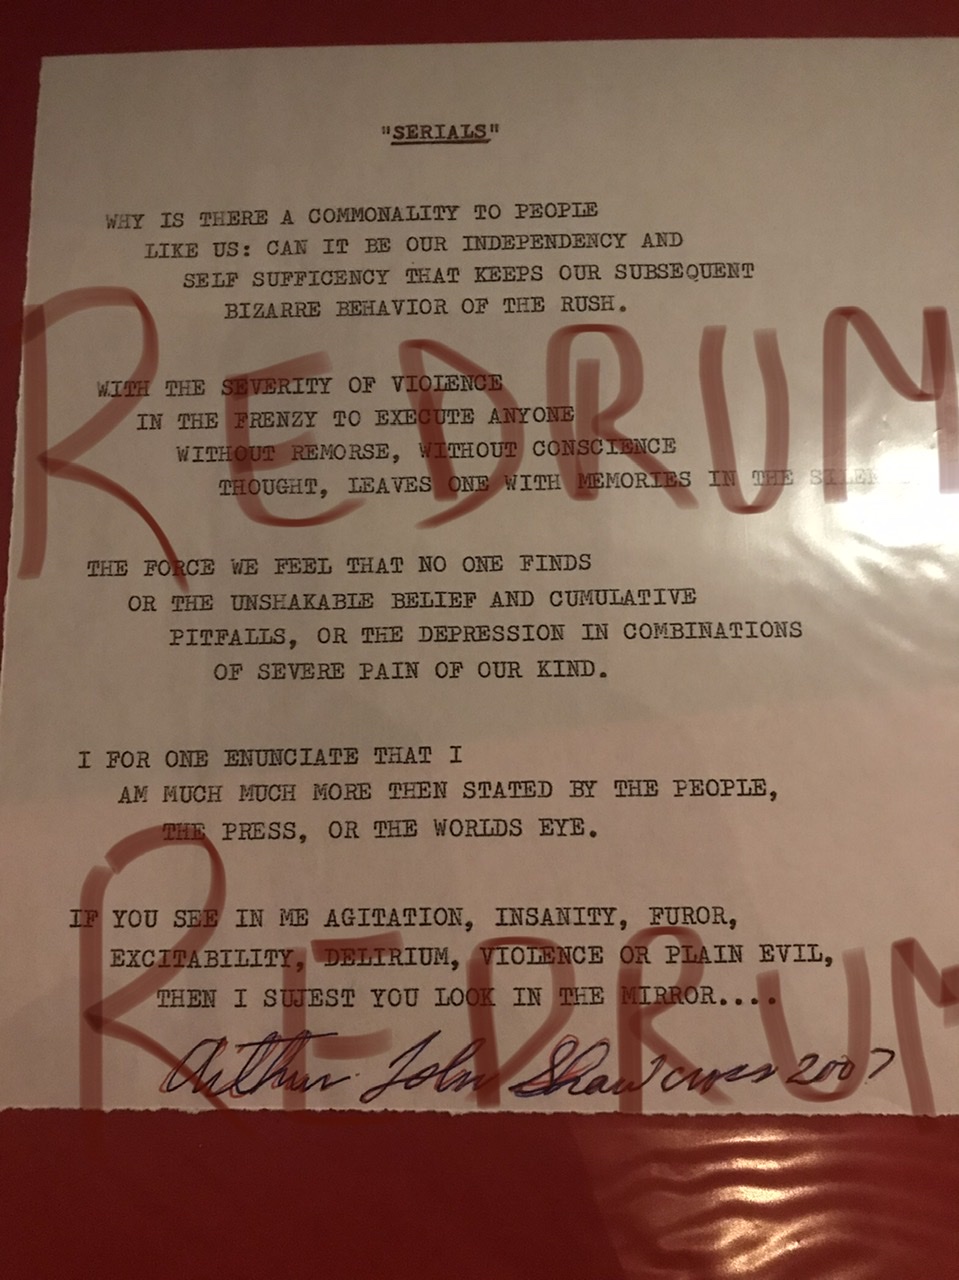 "SERIALS"
WHY IS THERE A COMMONALITY TO PEOPLE
LIKE US: CAN IT BE OUR INDEPENDENCY AND
SELF SUFFICENCY THAT KEEPS OUR SUBSEQUENT
BIZARRE BEHAVIOR OF THE RUSH.
REDRUM
WITH THE SEVERITY OF VIOLENCE
IN THE FRENZY TO EXECUTE ANYONE
WITHOUT REMORSE, WITHOUT CONSCIENCE
THOUGHT, LEAVES ONE WITH MEMORIES IN THE
THE FORCE WE FEEL THAT NO ONE FINDS
OR THE UNSHAKABLE BELIEF AND CUMULATIVE
PITFALLS, OR THE DEPRESSION IN COMBINATIONS
OF SEVERE PAIN OF OUR KIND.
I FOR ONE ENUNCIATE THAT I
AM MUCH MUCH MORE THEN STATED BY THE PEOPLE,
THE PRESS, OR THE WORLDS EYE.
REDRUM
IF YOU SEE IN ME AGITATION, INSANITY, FUROR,
EXCITABILITY, DELIRIUM, VIOLENCE OR PLAIN EVIL,
THEN I SUJEST YOU LOOK IN THE MIRROR....
Arthur John Shawcross 2007